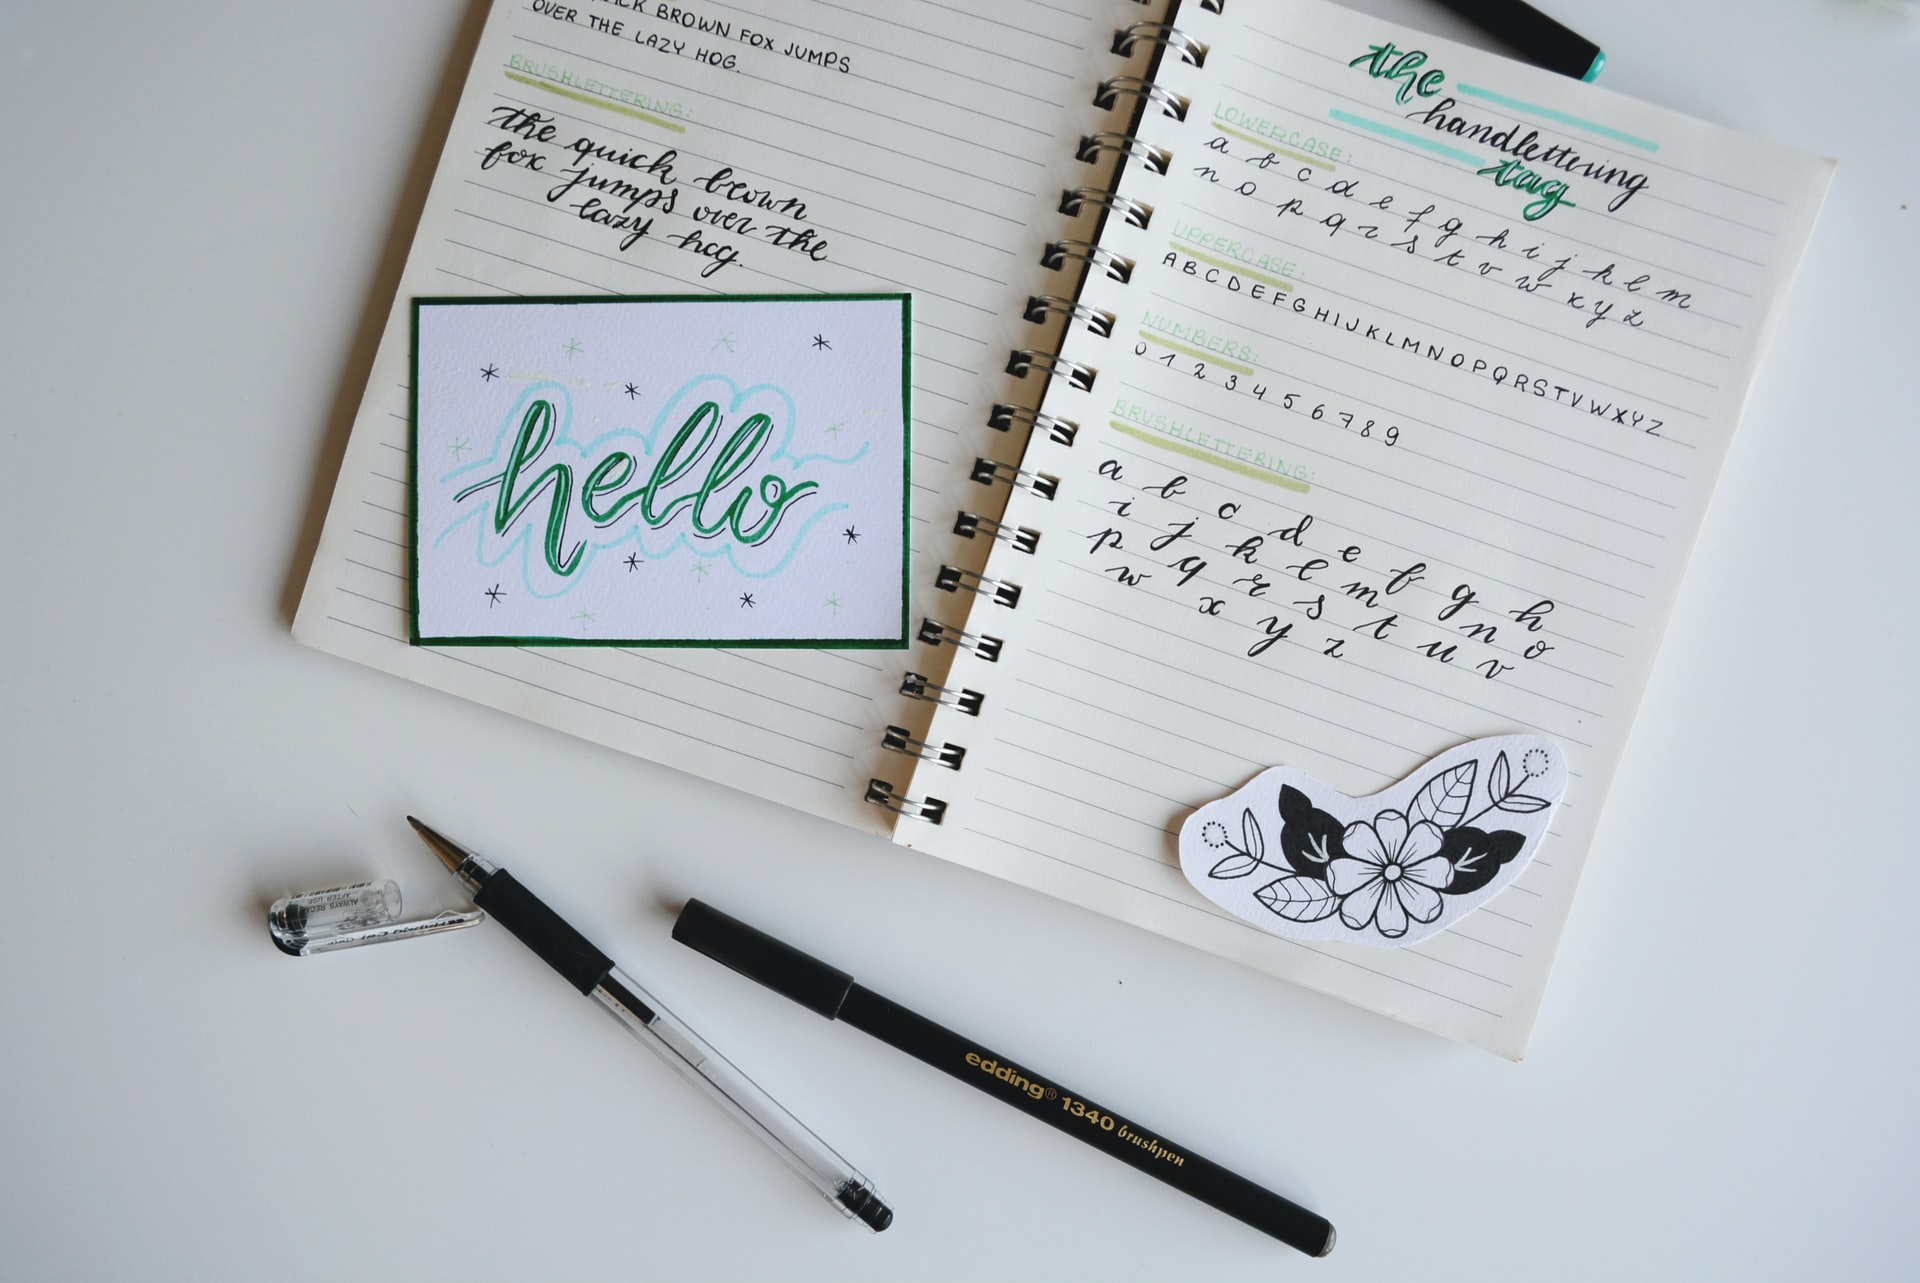 BROWN FOX JUMPS
OVER THE LAZY HOG.
BRUSHLETTERING:
the quick brown
fox jumps over the
lazy hog.
hello
the
handlettering
tag
LOWERCASE:
a b c d e f g h i j k l m
n o p q r s t v w x y z
UPPERCASE:
A B C D E F G H I J K L M N O P Q R S T V W X Y Z
NUMBERS:
0 1 2 3 4 5 6 7 8 9
BRUSHLETTERING:
a b c d e f g h
i j k l m n o
p q r s t u v
w x y z
ALWAYS
AFTER USE
edding® 1340 brushpen